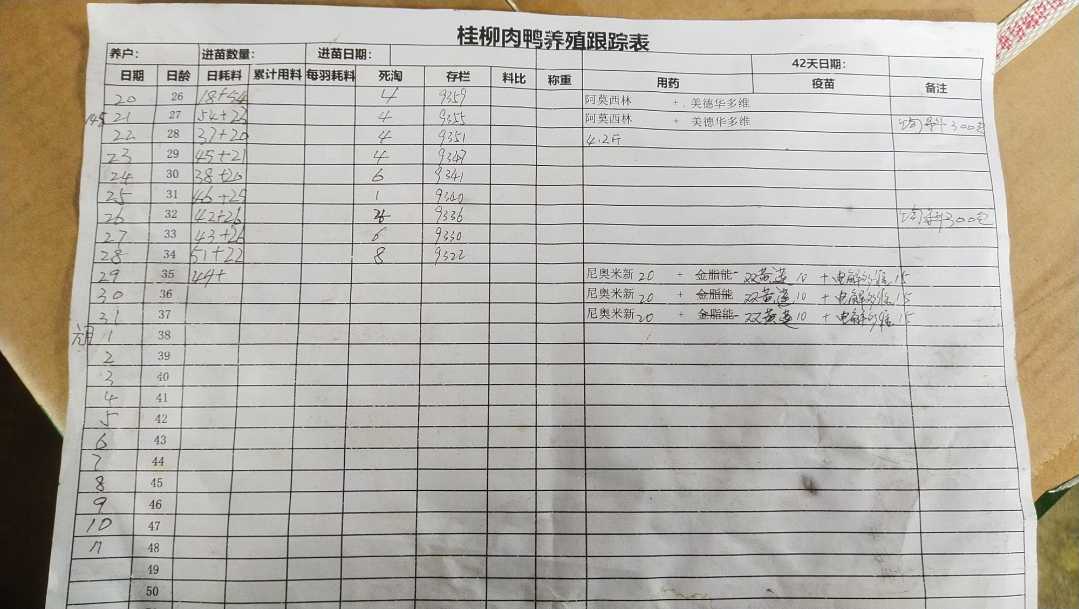 桂柳肉鸭养殖跟踪表
养户： 进苗数量： 进苗日期： 42天日期：
日期 日龄 日耗料 累计用料 每羽耗料 死淘 存栏 料比 称重 用药 疫苗 备注
20 26 18+54 4 9359 阿莫西林 + 美德华多维
21 27 54+23 4 9355 阿莫西林 + 美德华多维 料300包
22 28 37+20 4 9351 4.2斤
23 29 45+21 4 9347
24 30 38+20 6 9341
25 31 46+25 1 9340
26 32 42+26 4 9336 料300包
27 33 43+26 6 9330
28 34 51+22 8 9322
29 35 49+ 尼奥米新 20 + 金脂能 双黄连 10 + 电解多维 15
30 36 尼奥米新 20 + 金脂能 双黄连 10 + 电解多维 15
31 37 尼奥米新 20 + 金脂能 双黄连 10 + 电解多维 15
六月 1 38
2 39
3 40
4 41
5 42
6 43
7 44
8 45
9 46
10 47
11 48
49
50